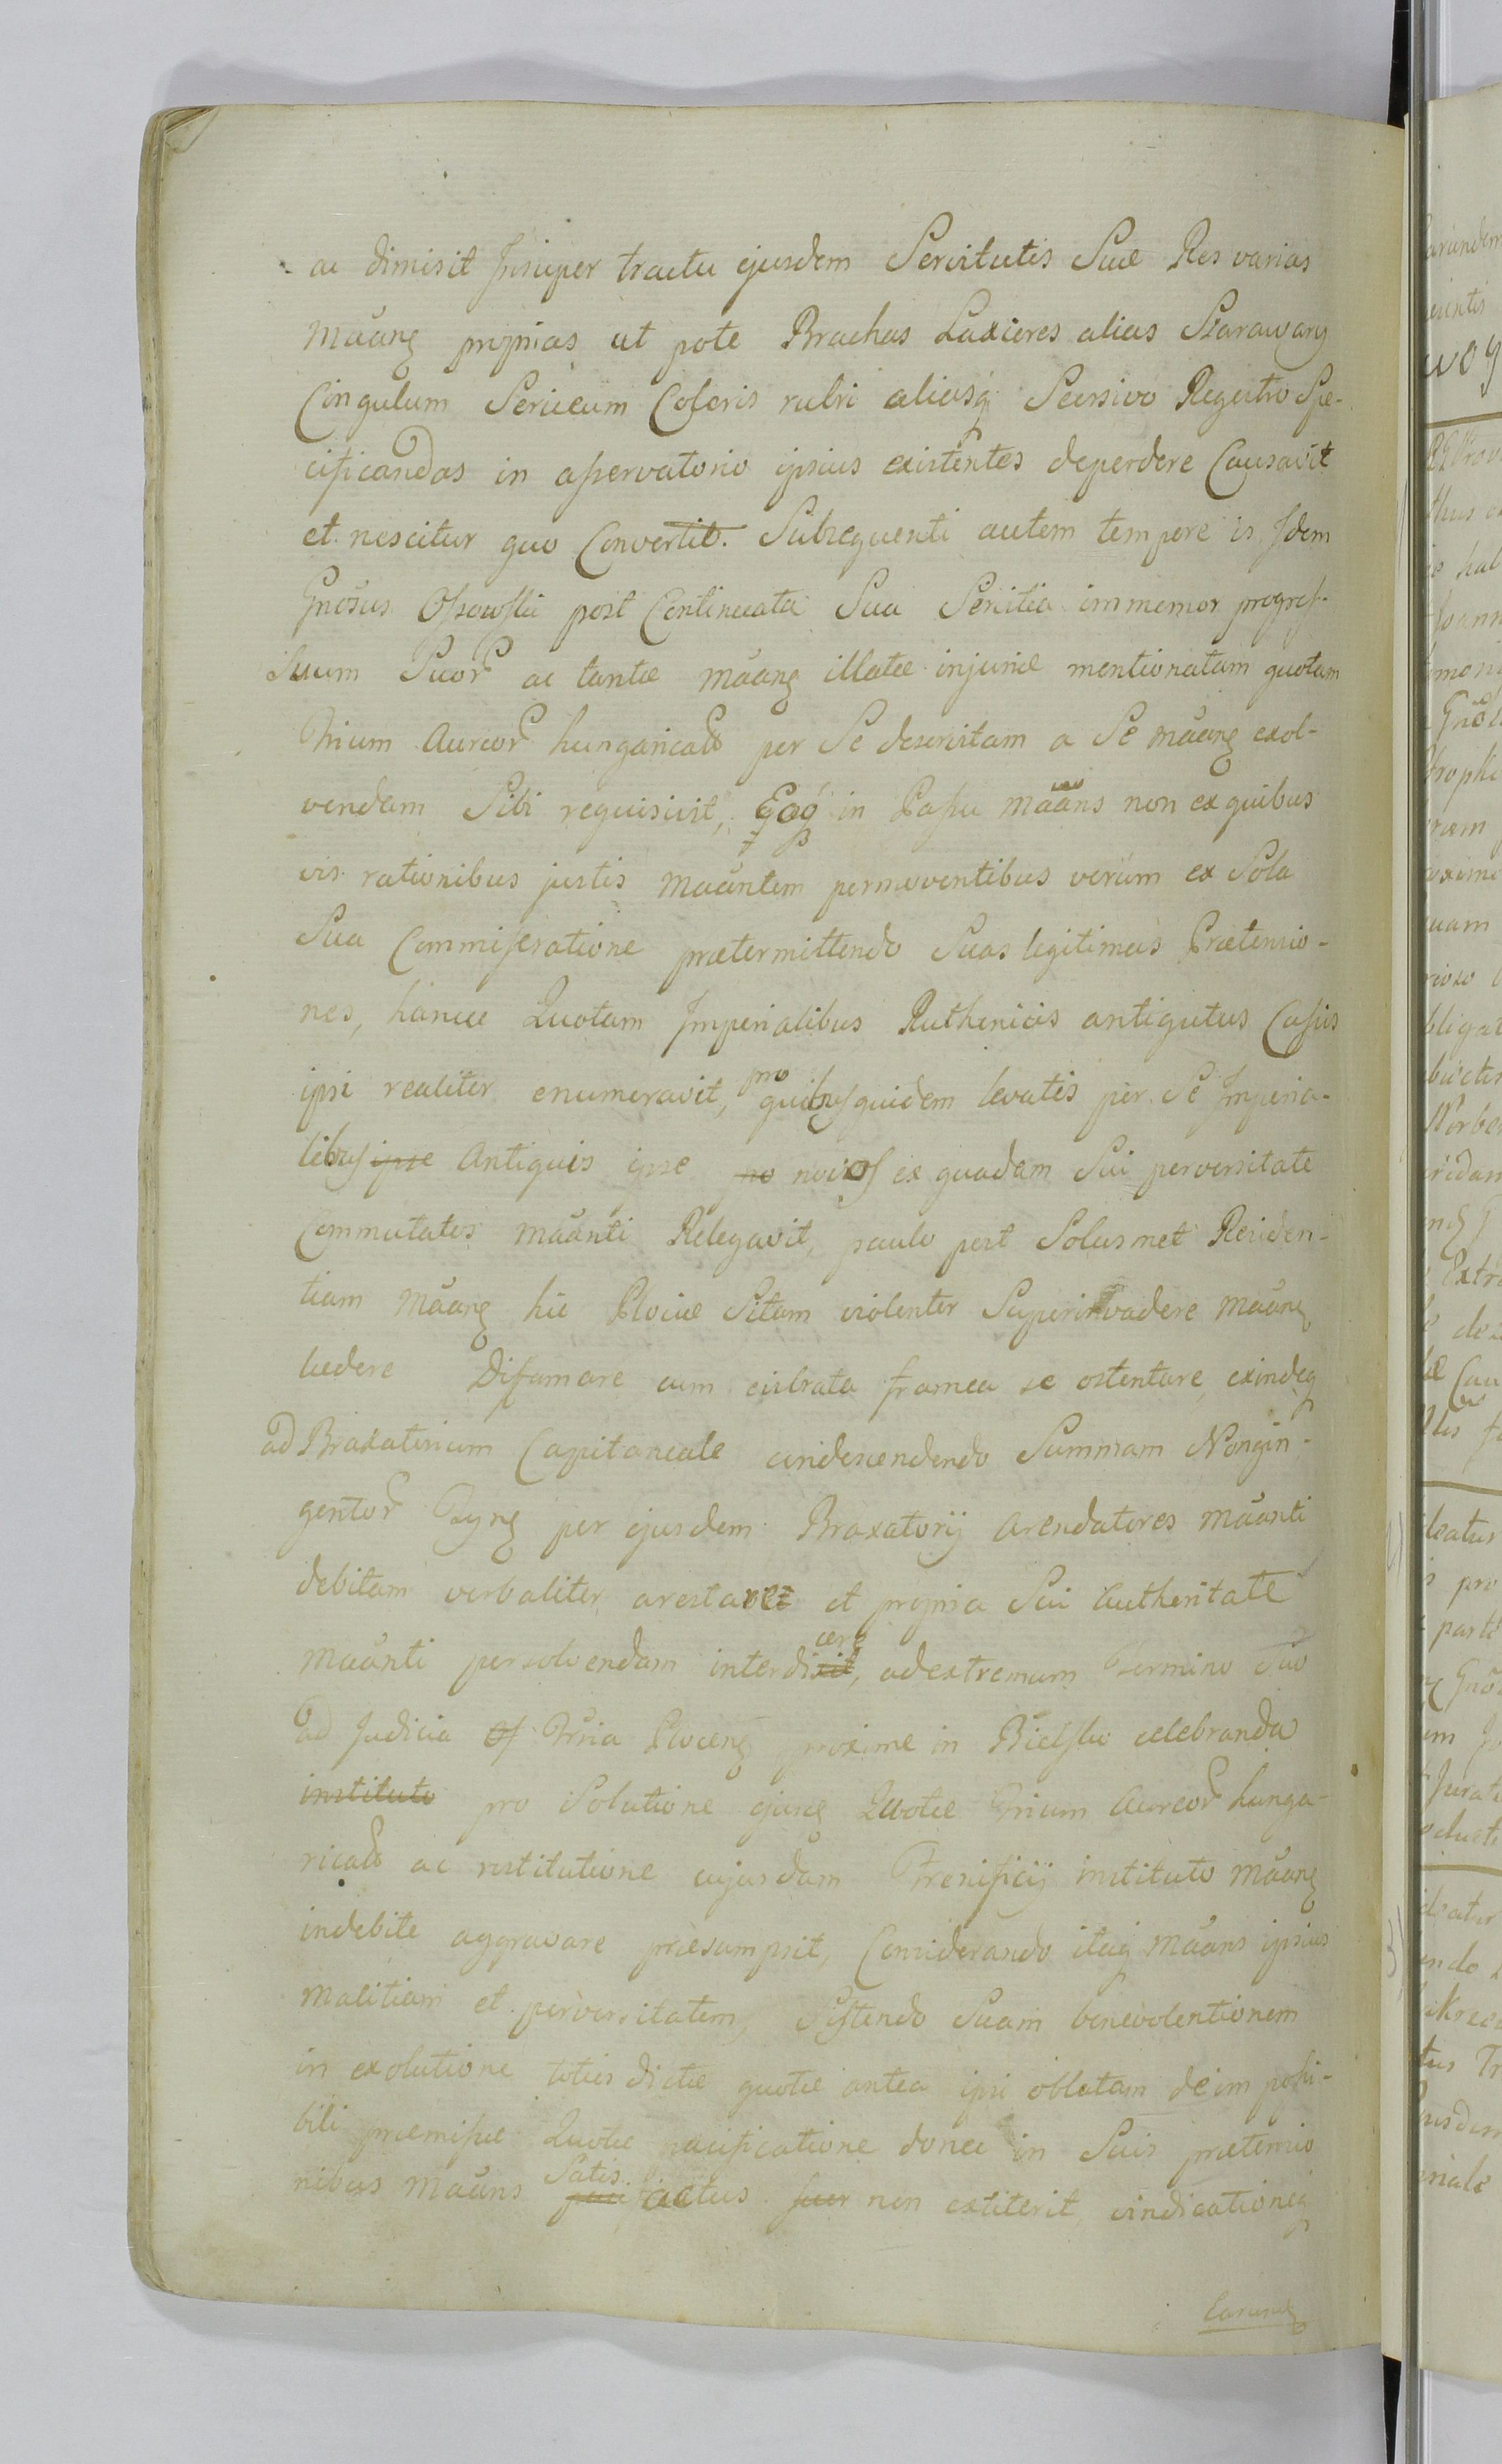 ac dimisit Insuper tractu ejusdem Servitutis Suæ Res varias
Māang proprias ut pote Brachas Laxieres alias Szarawary
Cingulum Sericeum Coloris rubri aliasq Seorsivo Regestro Spe-
cificandas in asservatorio ipsius existentes deperdere Causavit
et nescitur quo Convertit. Subsequenti autem tempore is Idem
Gnosus Ossowski post Continuata Sua Servitia immemor progres-
suum Suor ac tantæ māang illatæ injuriæ mentionatam quotam
Trium Aureor hungarical per Se deservitam a Se māang exol-
vendam Sibi requisivit, in Passu māans non ex quibus
vis rationibus justis māantem permoventibus verum ex Sola
Sua Commiseratione prætermittendo Suas legitimas Prætensio-
nes, hancce Quotam Imperialibus Ruthenicis antiquitus Cusis
ipsi realiter enumeravit, pro quibus quidem levatis per Se Imperia-
libus ipse Antiquis ipse no novos ex quadam Sui perversitate
Commutatos māanti Relegavit, paulo post Solusmet Residen-
tiam Māang hic Plociæ Sitam violenter Superinvadere māang
lædere Difamare cum evibrata framea se ostentare, exindeq
ad Braxatorium Capitaneale condescendendo Summam Nongin-
gentor per ejusdem Braxatorij Arendatores māanti
debitam verbaliter arestavit et propria Sui Authoritate
māanti persolvendam interdixit, cere ad extremum Termino Suo
ad Judicia Tria Plocens proxime in Bielsko celebranda
instituto pro Solutione ejusq Quotæ Trium Aureor hunga-
rical ac restitutione cujusdam Frenificij instituto māang
indebite aggravare præsumpsit, Considerando itaq māans ipsius
malitiam et perversitatem, Sistendo Suam benevolentionem
in exolutione toties dictæ quotæ antea ipsi oblatam de im possi-
bili præmissæ Quotæ pacificatione donec in Suis prætensio
nibus māans Satis factus fuer non extiterit, vindicationeq
Earund